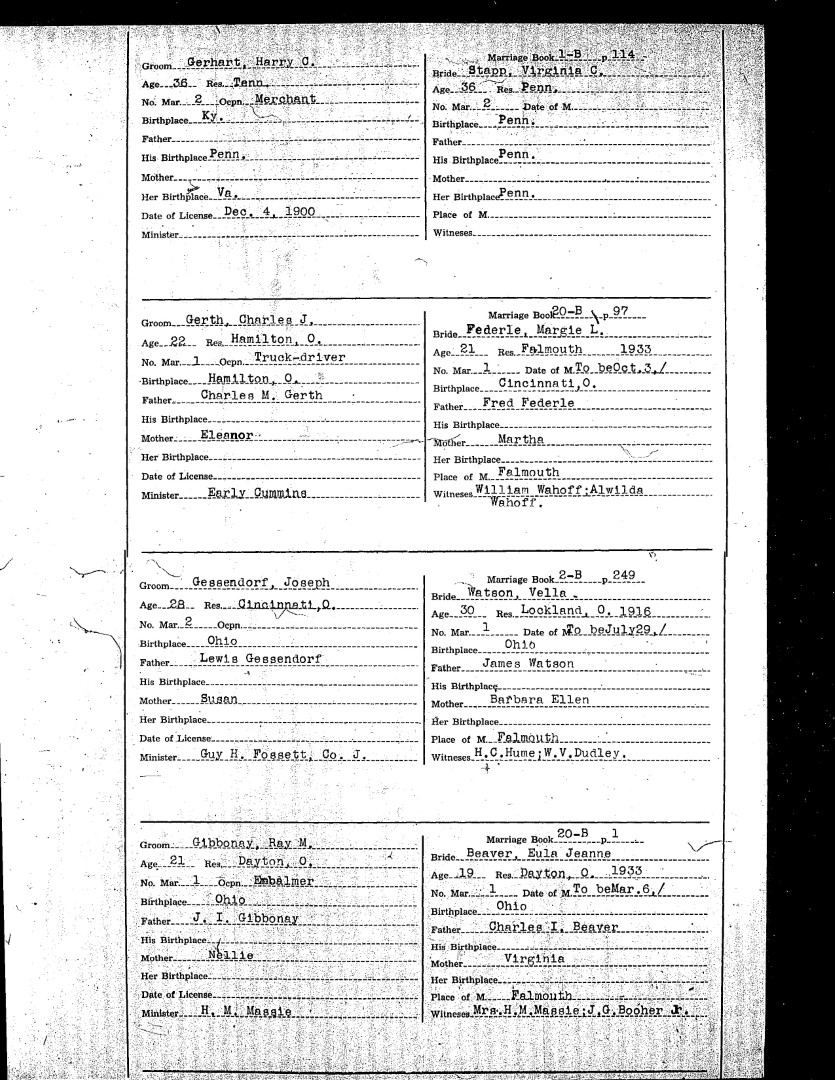 Groom Gerhart, Harry C.
Age 36 Res. Tenn.
No. Mar. 2 Ocpn. Merchant
Birthplace Ky.
Father
His Birthplace Penn.
Mother
Her Birthplace Va.
Date of License Dec. 4, 1900
Minister
Marriage Book 1-B p. 114
Bride Stapp, Virginia C.
Age 36 Res. Penn.
No. Mar. 2 Date of M.
Birthplace Penn.
Father
His Birthplace Penn.
Mother
Her Birthplace Penn.
Place of M.
Witneses
Groom Gerth, Charles J.
Age 22 Res. Hamilton, O.
No. Mar. 1 Ocpn. Truck-driver
Birthplace Hamilton, O.
Father Charles M. Gerth
His Birthplace
Mother Eleanor
Her Birthplace
Date of License
Minister Early Cummins
Marriage Book 20-B p. 97
Bride Federle, Margie L.
Age 21 Res. Falmouth 1933
No. Mar. 1 Date of M. To be Oct.3,/
Birthplace Cincinnati,O.
Father Fred Federle
His Birthplace
Mother Martha
Her Birthplace
Place of M. Falmouth
Witneses William Wahoff;Alwilda
Wahoff.
Groom Gessendorf, Joseph
Age 28 Res. Cincinnati,O.
No. Mar. 2 Ocpn.
Birthplace Ohio
Father Lewis Gessendorf
His Birthplace
Mother Susan
Her Birthplace
Date of License
Minister Guy H. Fossett, Co. J.
Marriage Book 2-B p. 249
Bride Watson, Vella
Age 30 Res. Lockland, O. 1916
No. Mar. 1 Date of M. To be July29,/
Birthplace Ohio
Father James Watson
His Birthplace
Mother Barbara Ellen
Her Birthplace
Place of M. Falmouth
Witneses H.C.Hume;W.V.Dudley.
Groom Gibbonay, Ray M.
Age 21 Res. Dayton, O.
No. Mar. 1 Ocpn. Embalmer
Birthplace Ohio
Father J. I. Gibbonay
His Birthplace
Mother Nellie
Her Birthplace
Date of License
Minister H. M. Massie
Marriage Book 20-B p. 1
Bride Beaver, Eula Jeanne
Age 19 Res. Dayton, O. 1933
No. Mar. 1 Date of M. To be Mar.6,/
Birthplace Ohio
Father Charles I. Beaver
His Birthplace
Mother Virginia
Her Birthplace
Place of M. Falmouth
Witneses Mrs.H.M.Massie;J.G.Booher Jr.